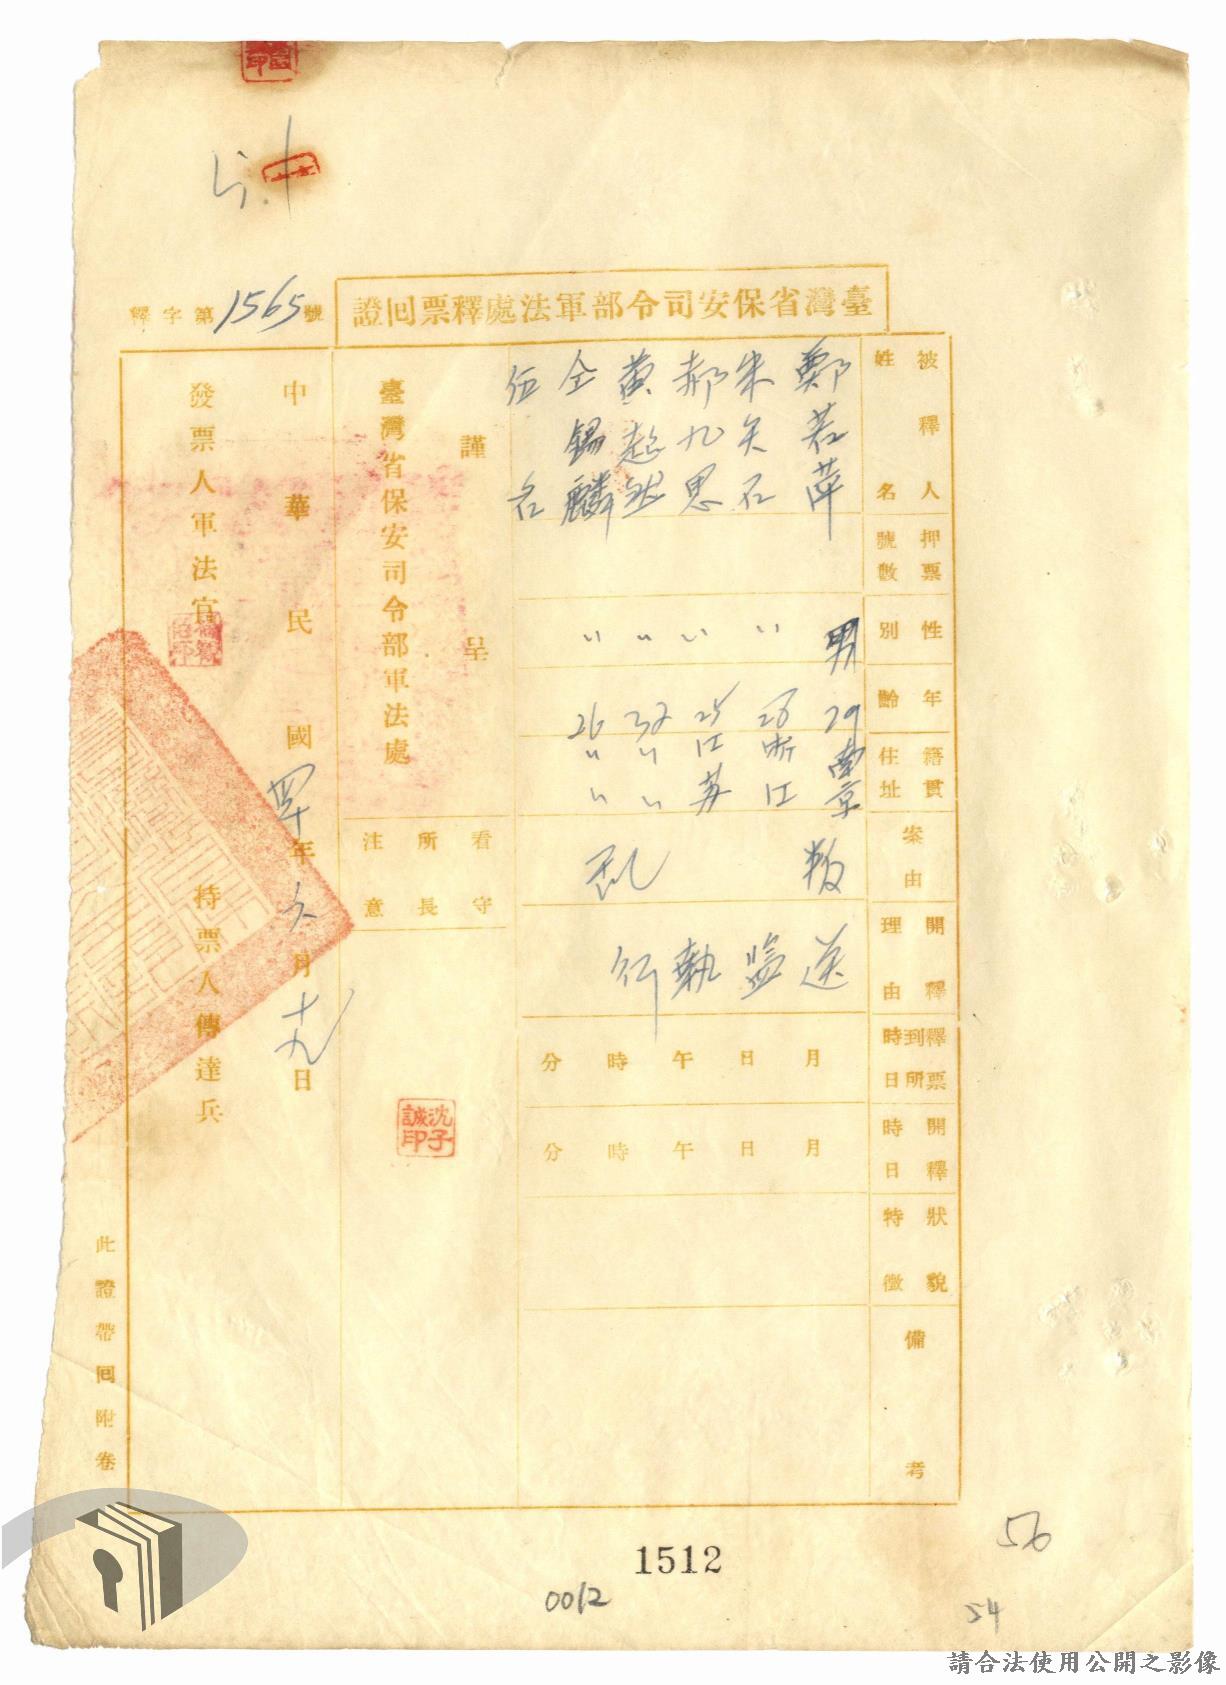 臺灣省保安司令部軍法處釋票回證
釋字第1565號
被釋人姓名
鄭若萍
朱矢石
郝九思
黃起然
仝錫麟
伍名
押票號數
性別
男
〃
〃
〃
〃
年齡
29
26
25
32
26
籍貫住址
南京
浙江
江苏
〃〃
〃〃
案由
叛乱
開釋理由
送監執行
釋票到所時日
月日午時分
開釋時日
月日午時分
狀貌特徵
備考
謹呈
臺灣省保安司令部軍法處
看守所長注意
沈子誠印
中華民國四十年六月十九日
發票人軍法官
持票人傳達兵
此證帶回附卷
1512
0012
56
54
請合法使用公開之影像